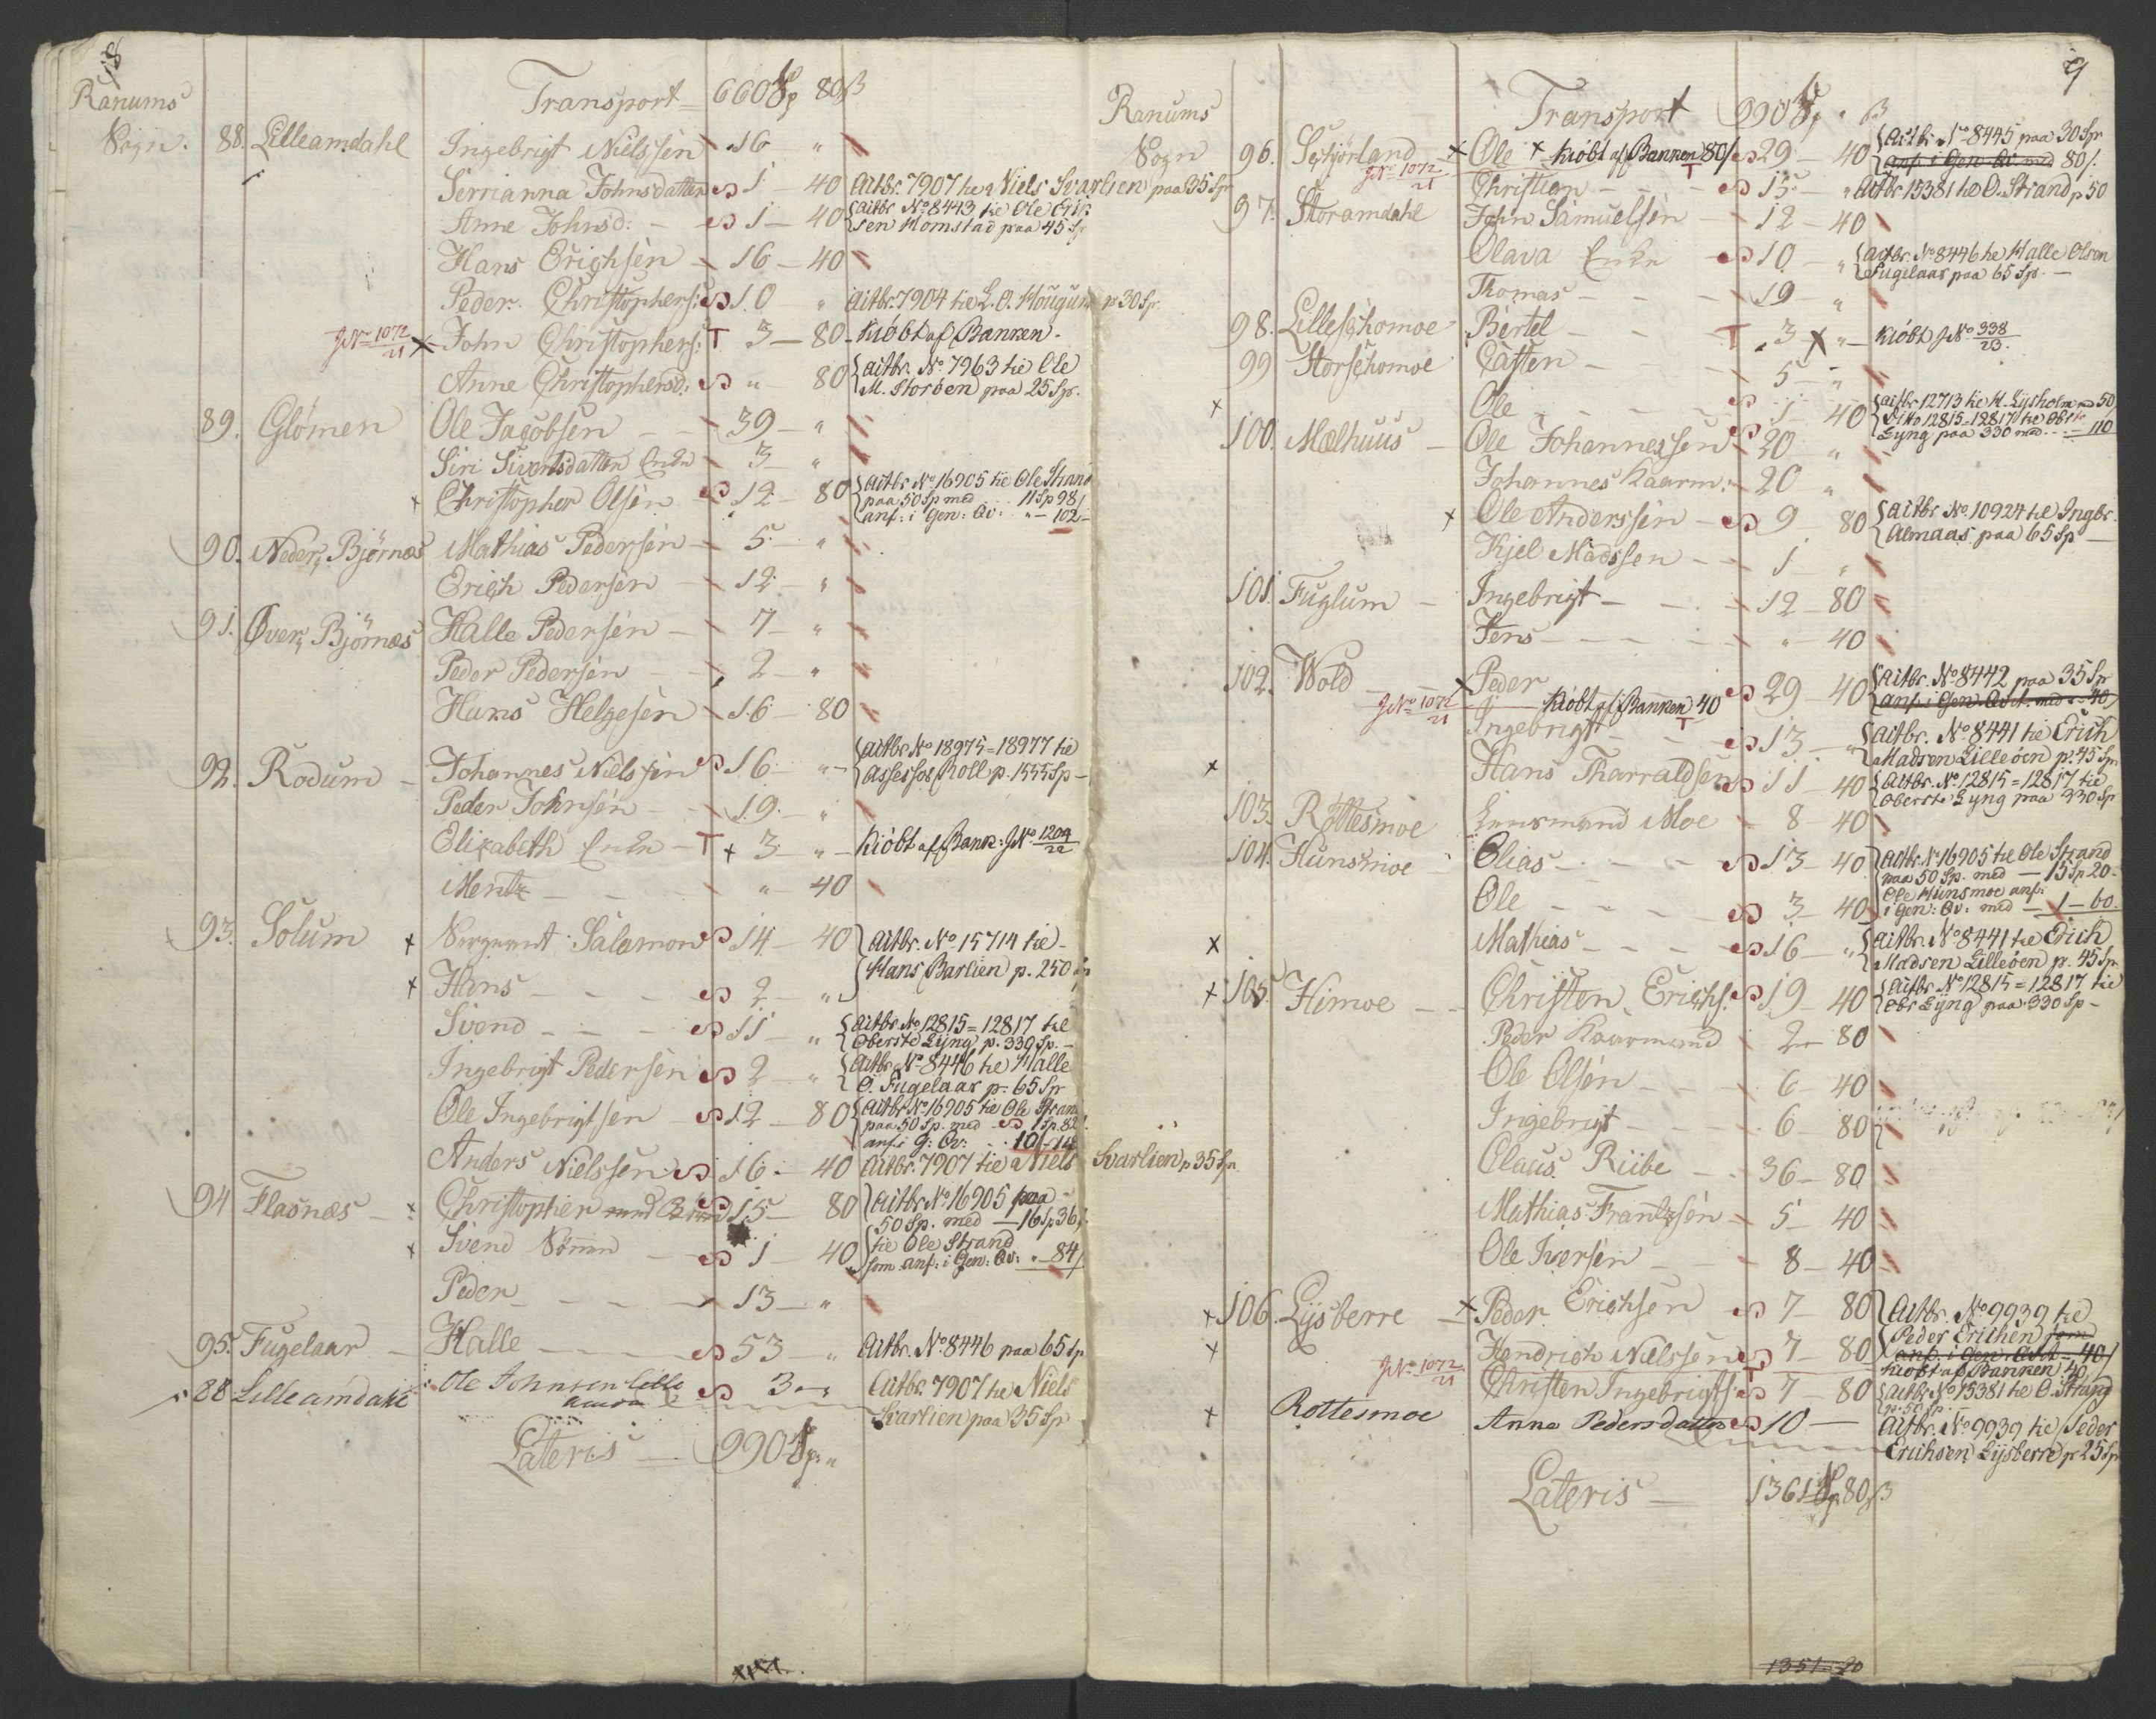 8
Ranums Sogn.
Transport = 660 Sp 80 ß
88. Lilleamdahl Ingebrigt Nielssen 16 "
Serrianna Johnsdatter 1 40 Actbr. 7907 til Niels Svarlien paa 35 Sp
Anne Johnsd: – 1 – 40 Actbr. No 8443 til Ole Erich
sen Homstad paa 45 Sp
Hans Erichsen 16 – 40
Peder Christophers: 10 " Actbr. 7904 til L. O. Hougum p 30 Sp.
JNo 1072/21 × John Christophers: T 3 – 80 – Kiöbt af Banken –
Anne Christophersd: " 80 Actbr. No 7963 til Ole
M. Storöen paa 25 Sp.
89. Glömen Ole Jacobsen – 39 – "
Siri Sivertsdatter Enke 3 – "
× Christopher Olsen 12 – 80 Actbr No 16905 til Ole Strand
paa 50 Sp med 11 Sp 98/
anf: i Gen: Qv: " – 102 –
90. Neder Björnæs Mathias Pedersen – 5 – "
Erich Pedersen – 12 – "
91. Øver Björnæs Halle Pedersen – 7 – "
Peder Pedersen – 2 "
Hans Helgesen 16 – 80
92. Rodum – Johannes Nielssen 16 " – Actbr No 18975 = 18977 til
Assessor Roll p. 1555 Sp –
Peder Johnsen – 19 – "
Elizabeth Enke – T × 3 – " – Kiöbt af Bank: JNo 1204/22
Mentz – – " – 40
93. Solum × Sergeant Salamon 14 – 40 Actbr. No 15714 til –
× Hans – – – 2 – " Hans Barlien p. 250 Sp
Svend – – – 11 " Actbr No 12815 = 12817 til
Oberste Lyng p. 330 Sp. –
Ingebrigt Pedersen 2 – " Actbr No 8446 til Halle
O. Fugelaar p. 65 Sp
Ole Ingebrigtsen – 12 – 80 Actbr No 16905 til Ole Strand
paa 50 Sp. med – 1 Sp. 82
anf: i G: Qv:
Anders Nielssen 16 – 40 Actbr. 7907 til Niels Svarlien p 35 Sp.
94 Flasnæs – × Christopher 15 – 80 Actbr No 16905 paa –
50 Sp. med – 16 Sp 36/
× Svend Sönen – 1 – 40 til Ole Strand
som anf: i Gen: Qv: " – 84/
Peder – – – 13 – "
95. Fugelaar – Halle – – 53 – " Actbr. No 8446 paa 65 Sp
88 Lilleamdahl Ole Johnsen Lille 3 – " Actbr. 7907 til Niels
amdal Svarlien paa 35 Sp
Lateris – 990 Sp. "
9
Ranums Sogn
Transport 990 Sp " ß
96. Seßiörland – × Ole × Kiöbt af Banken 80/ 29 – 40 Actbr. No 8445 paa 30 Sp
anf i Gen Qv med 80/.
JNo 1072/21 T
Christian – – – 15 – " Actbr 15381 til O. Strand p 50
97. Storamdahl John Samuelsen – 12 – 40
Olava Enke 10 – " Actbr. No 8446 til Halle Olsen
Fugelaar paa 65 Sp. –
Thomas – – – 19 – "
98. Lilleschomoe Bertel – – T 3 × " – Kiöbt JNo 338/23.
99 Storschomoe Casten – – – 5 – "
× Ole – – – – 1 40 Actbr 12713 til H. Lysholm 50/
Ditto 12815–12817 til Obrst
Lyng paa 330 med – 110
100. Mælhuus – Ole Johannessen 20 "
Johannes Kaarm: – 20 "
× Ole Anderssen – 9 – 80 Actbr No 10924 til Ingbr.
Almaas paa 65 Sp –
Kjel Madssen – – 1 "
101. Fuglum – Ingebrigt – – – 12 – 80
Jens – – – – " – 40
102. Wold – × Peder 29 – 40 Actbr. No 8442 paa 35 Sp
anf i Gen Qvit. med " – 40/
JNo 1072/21 Kiöbt af Banken 40 T
Ingebrigt – – 13 – " Actbr. No 8441 til Erich
Madsen Lilleöen p. 45 Sp
× Hans Tharraldsen 11 – 40 Actbr. No 12815 = 12817 til
Oberste Lyng paa 330 Sp
103. Röttesmoe Lensmand Moe – 8 – 40
104. Hunsmoe – Elias – – – 13 – 40 Actbr. No 16905 til Ole Strand
paa 50 Sp. med – 15 Sp 20 –
Ole – – – – 3 – 40 Ole Hunsmoe anf:
i Gen: Qv: med – 1 – 60.
× Mathias – – – 16 – " Actbr. No 8441 til Erich
Madsen Lilleöen p. 45 Sp
× 105. Himoe – – Christen Erichs. 19 – 40 Actbr. No 12815 = 12817 til
Obr Lyng paa 330 Sp –
Peder Kaarmand – 2 – 80
Ole Olsen – – – 6 – 40
Ingebrigt – – – 6 – 80
Claus Riibe – 36 – 80
Mathias Frantzsen – 5 – 40
Ole Iversen – – 8 – 40
× 106. Lysberre – × Peder Erichsen 7 – 80 Actbr. No 9939 til
Peder Erichsen som
× Hendrich Nielssen 7 – 80 anf. i Gen. Qvit – 40/
Kiöbt af Banken 40/
JNo 1072/21 Christen Ingebrigts: 7 – 80 Actbr No 15381 til O. Strand
p. 50 Sp.
× Rottesmoe Anna Pedersdatter 10 – Actbr. No 9939 til Peder
Erichsen Lysberre p 25 Sp
Lateris – 1361 Sp 80 ß
1351 – 20